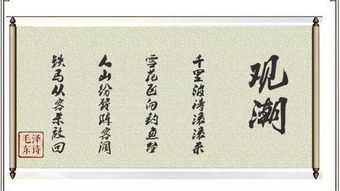 观潮
千里波涛滚滚来
雪花飞向钓鱼台
人山纷赞阵容阔
铁马从容杀敌回
毛泽
东诗